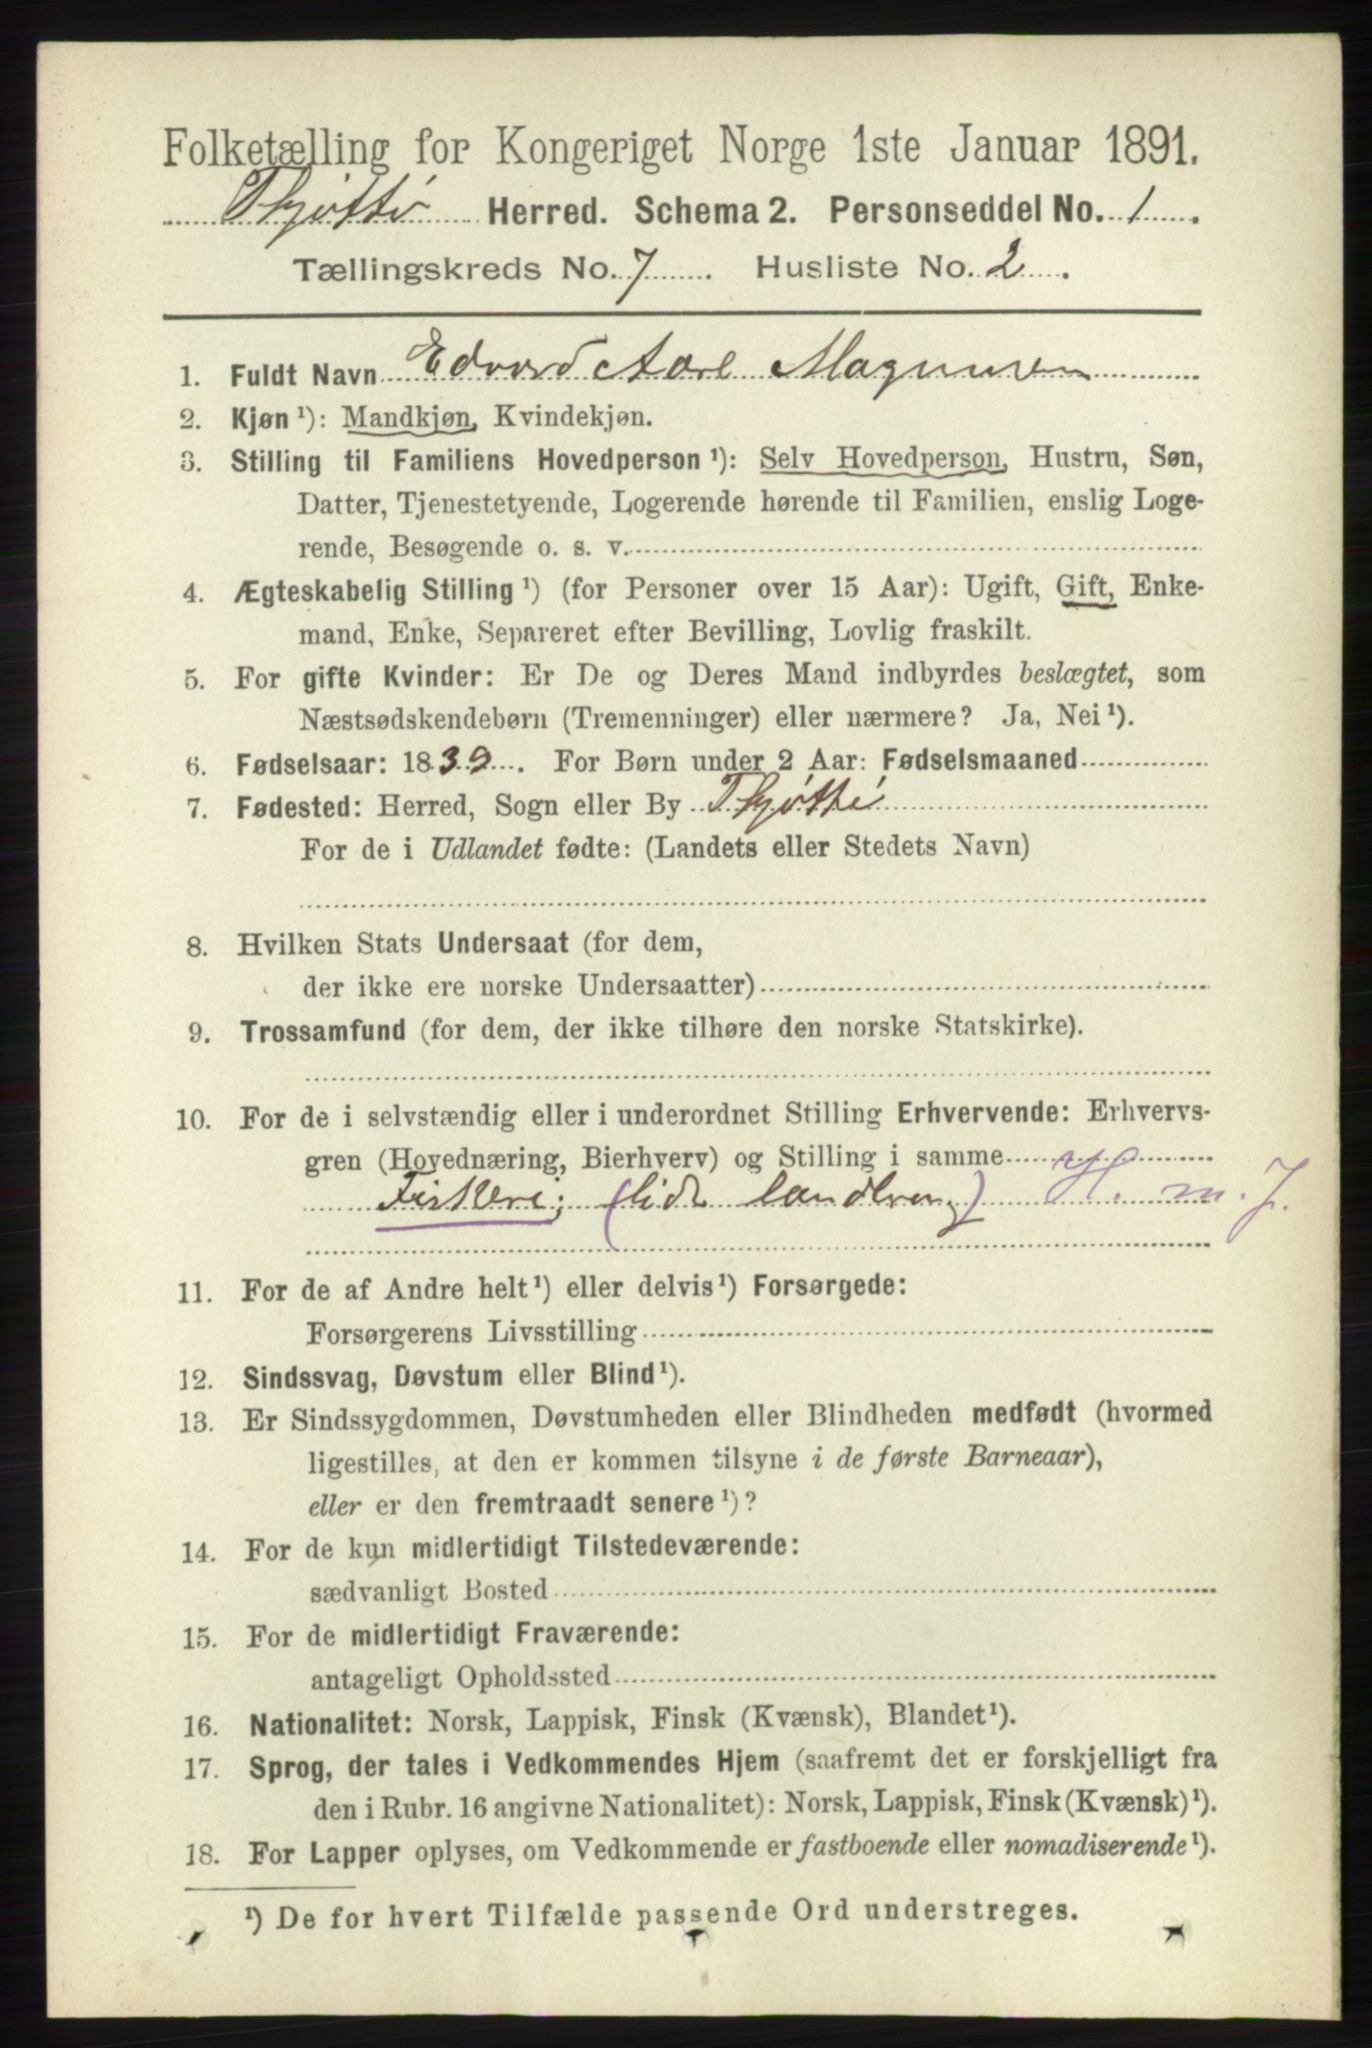 Folketælling for Kongeriget Norge 1ste Januar 1891.
Thjøttø Herred. Schema 2. Personseddel No. 1.
Tællingskreds No. 7. Husliste No. 2.
1. Fuldt Navn Edvard Magnusen
2. Kjøn ¹): Mandkjøn, Kvindekjøn.
3. Stilling til Familiens Hovedperson ¹): Selv Hovedperson, Hustru, Søn,
Datter, Tjenestetyende, Logerende hørende til Familien, enslig Loge-
rende, Besøgende o. s. v.
4. Ægteskabelig Stilling ¹) (for Personer over 15 Aar): Ugift, Gift, Enke-
mand, Enke, Separeret efter Bevilling, Lovlig fraskilt.
5. For gifte Kvinder: Er De og Deres Mand indbyrdes beslægtet, som
Næstsødskendebørn (Tremenninger) eller nærmere? Ja, Nei ¹).
6. Fødselsaar: 1839. For Børn under 2 Aar: Fødselsmaaned
7. Fødested: Herred, Sogn eller By Thjøttø
For de i Udlandet fødte: (Landets eller Stedets Navn)
8. Hvilken Stats Undersaat (for dem,
der ikke ere norske Undersaatter)
9. Trossamfund (for dem, der ikke tilhøre den norske Statskirke).
10. For de i selvstændig eller i underordnet Stilling Erhvervende: Erhvervs-
gren (Hovednæring, Bierhverv) og Stilling i samme
Fiskeri; (lidt landbrug) H. m. J.
11. For de af Andre helt ¹) eller delvis ¹) Forsørgede:
Forsørgerens Livsstilling
12. Sindssvag, Døvstum eller Blind ¹).
13. Er Sindssygdommen, Døvstumheden eller Blindheden medfødt (hvormed
ligestilles, at den er kommen tilsyne i de første Barneaar),
eller er den fremtraadt senere ¹)?
14. For de kun midlertidigt Tilstedeværende:
sædvanligt Bosted
15. For de midlertidigt Fraværende:
antageligt Opholdssted
16. Nationalitet: Norsk, Lappisk, Finsk (Kvænsk), Blandet ¹).
17. Sprog, der tales i Vedkommendes Hjem (saafremt det er forskjelligt fra
den i Rubr. 16 angivne Nationalitet): Norsk, Lappisk, Finsk (Kvænsk) ¹).
18. For Lapper oplyses, om Vedkommende er fastboende eller nomadiserende ¹).
¹) De for hvert Tilfælde passende Ord understreges.